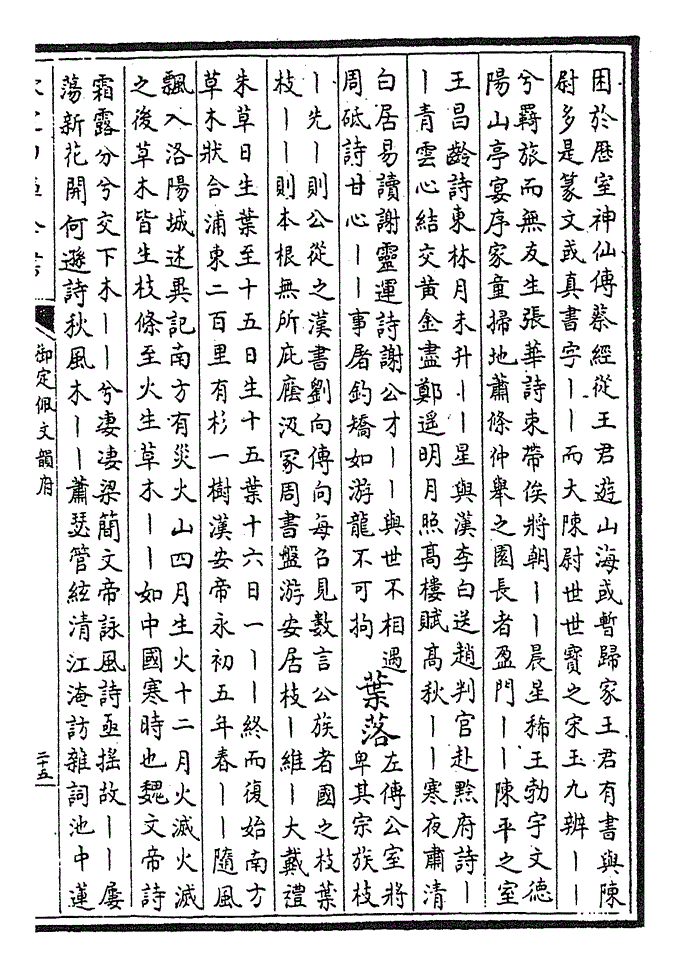 困於歴室神仙傳蔡經從王君遊山海或暫歸家王君有書與陳
尉多是篆文或真書字丨丨而大陳尉世世寶之宋玉九辨丨丨
兮羇旅而無友生張華詩束帶俟將朝丨丨晨星稀王勃宇文德
陽山亭宴序家童掃地蕭條仲舉之園長者盈門丨丨陳平之室
王昌齡詩東林月未升丨丨星與漢李白送趙判官赴黔府詩丨
丨青雲心結交黄金盡鄭遥明月照高樓賦高秋丨丨寒夜肅清
白居易讀謝靈運詩謝公才丨丨與世不相遇
周砥詩甘心丨丨事屠釣矯如游龍不可拘
葉落
左傳公室將
卑其宗族枝
丨先丨則公從之漢書劉向傳向每召見數言公族者國之枝葉
枝丨丨則本根無所庇廕汲冢周書盤游安居枝丨維丨大戴禮
朱草日生葉至十五日生十五葉十六日一丨丨終而復始南方
草木狀合浦東二百里有杉一樹漢安帝永初五年春丨丨隨風
飄入洛陽城述異記南方有災火山四月生火十二月火滅火滅
之後草木皆生枝條至火生草木丨丨如中國寒時也魏文帝詩
霜露分兮交下木丨丨兮凄凄梁簡文帝詠風詩亟揺故丨丨屢
蕩新花開何遜詩秋風木丨丨蕭瑟管絃清江淹訪雜詞池中蓮
御定佩文韻府
二十五